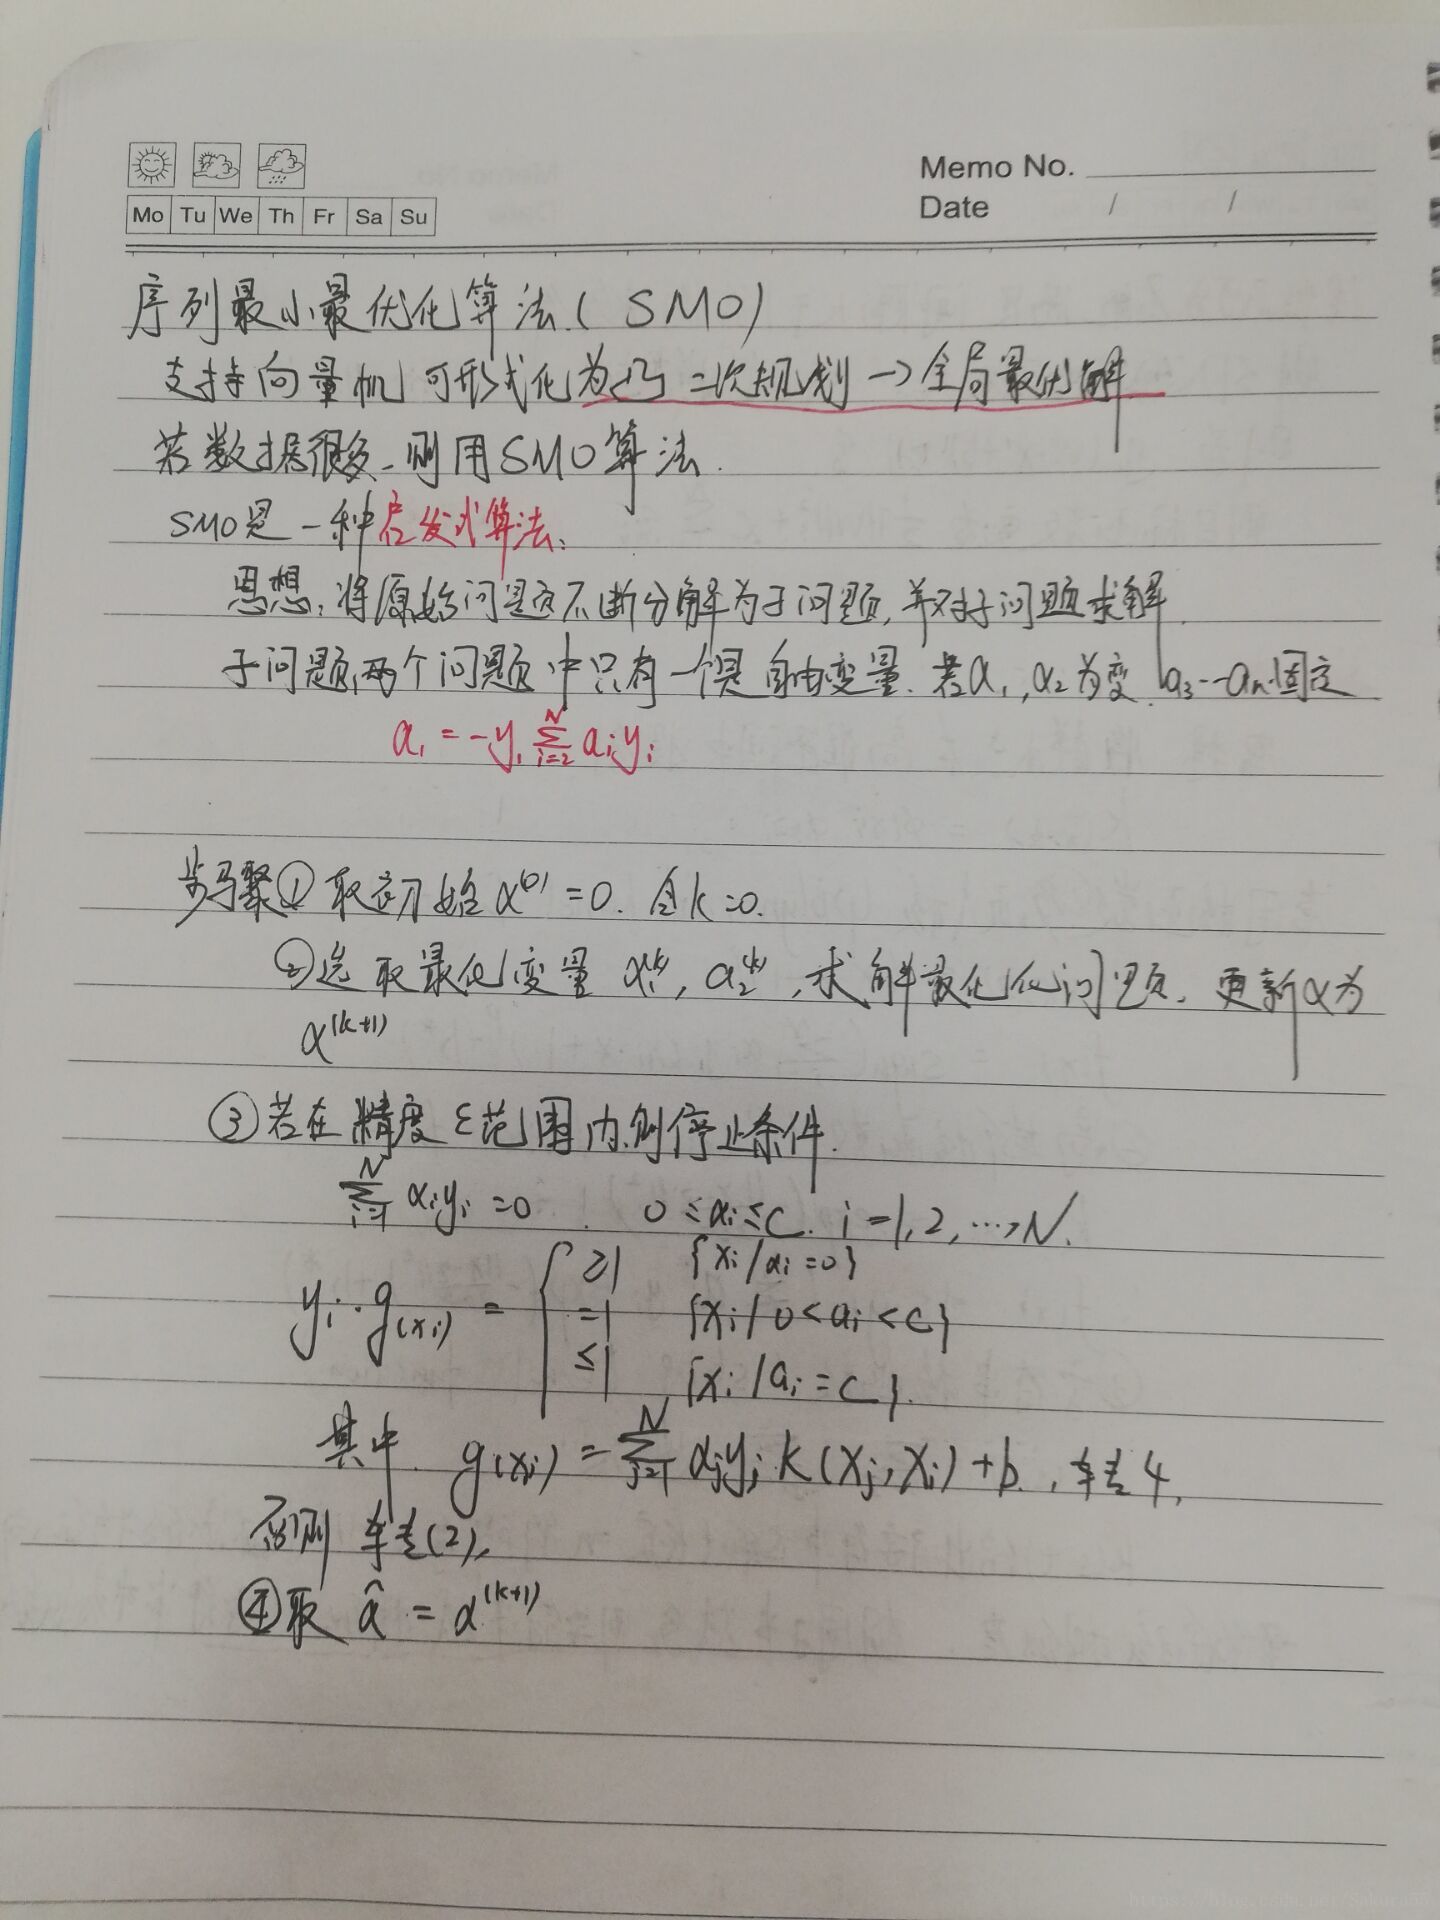 Memo No.
Date / /
Mo Tu We Th Fr Sa Su
序列最小最优化算法(SMO)
支持向量机可形式化为凸二次规划→全局最优解
若数据很多,则用SMO算法.
SMO是一种启发式算法:
思想:将原始问题不断分解为子问题,并对子问题求解.
子问题两个问题中只有一个是自由变量.若α₁,α₂为变.α₃--αₙ固定
α₁=-y₁∑ᵢ₌₂ᴺαᵢyᵢ
步骤①取初始α⁽⁰⁾=0.令k=0.
②选取最化变量α₁⁽ᵏ⁾,α₂⁽ᵏ⁾,求解最化化问题.更新α为
α⁽ᵏ⁺¹⁾
③若在精度ε范围内,则停止条件.
∑ᵢ₌₁ᴺαᵢyᵢ=0. 0≤αᵢ≤C. i=1,2,…,N.
yᵢ·g(xᵢ)={ ≥1 {xᵢ/αᵢ=0}
=1 {xᵢ/0<αᵢ<C}
≤1 {xᵢ/αᵢ=C}.
其中. g(xᵢ)=∑ⱼ₌₁ᴺαⱼyⱼk(xⱼ,xᵢ)+b.,转4,
否则 转(2),
④取 α̂=α⁽ᵏ⁺¹⁾